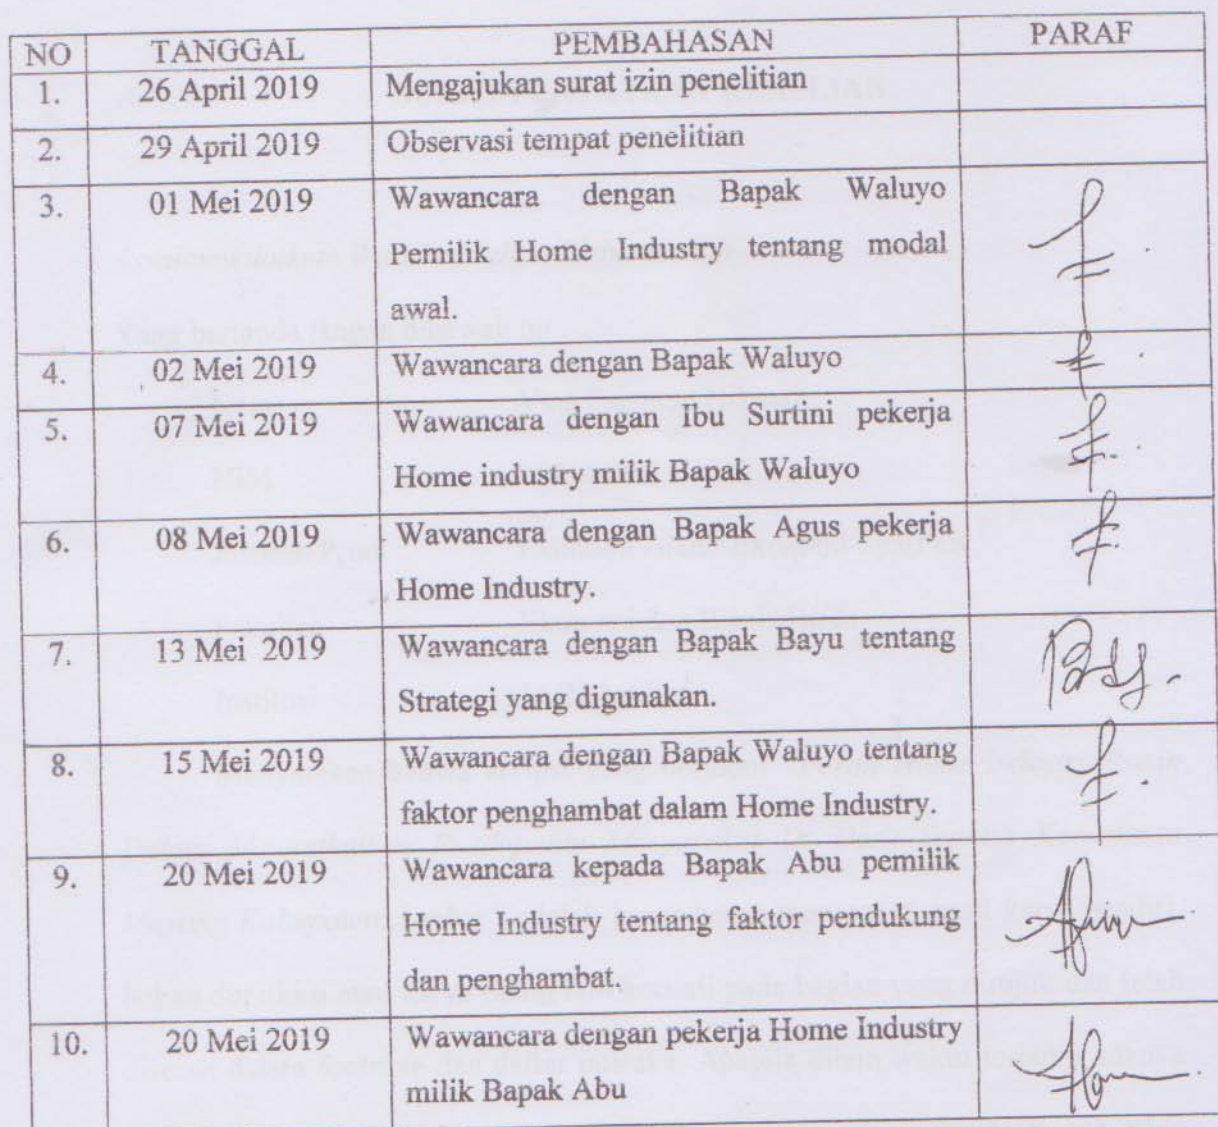 NO TANGGAL PEMBAHASAN PARAF
1. 26 April 2019 Mengajukan surat izin penelitian
2. 29 April 2019 Observasi tempat penelitian
3. 01 Mei 2019 Wawancara dengan Bapak Waluyo
Pemilik Home Industry tentang modal
awal.
4. 02 Mei 2019 Wawancara dengan Bapak Waluyo
5. 07 Mei 2019 Wawancara dengan Ibu Surtini pekerja
Home industry milik Bapak Waluyo
6. 08 Mei 2019 Wawancara dengan Bapak Agus pekerja
Home Industry.
7. 13 Mei 2019 Wawancara dengan Bapak Bayu tentang
Strategi yang digunakan.
8. 15 Mei 2019 Wawancara dengan Bapak Waluyo tentang
faktor penghambat dalam Home Industry.
9. 20 Mei 2019 Wawancara kepada Bapak Abu pemilik
Home Industry tentang faktor pendukung
dan penghambat
10. 20 Mei 2019 Wawancara dengan pekerja Home Industry
milik Bapak Abu